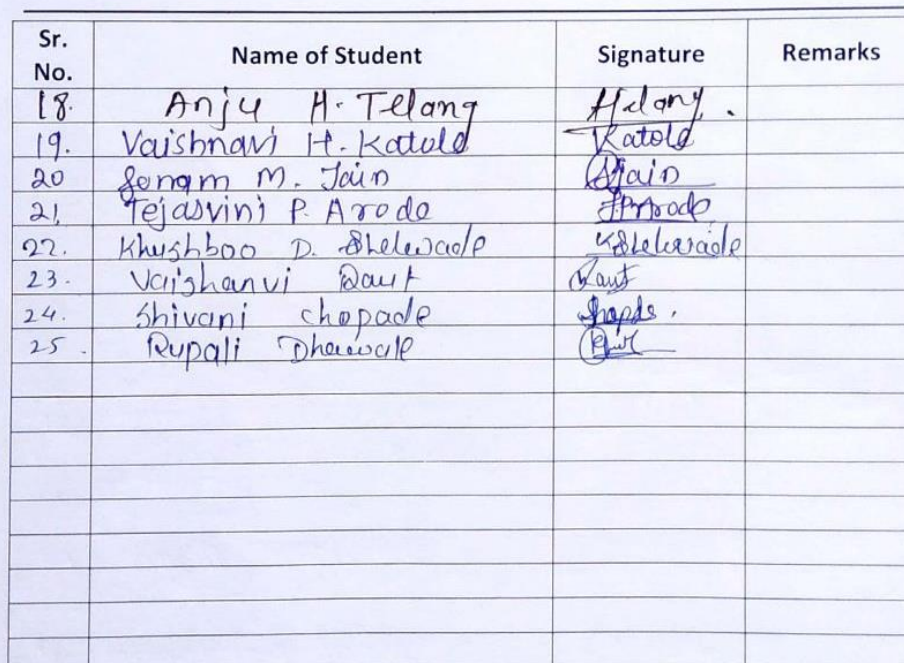 Sr. No. Name of Student Signature Remarks
18. Anju H. Telang Htelang.
19. Vaishnavi H. Katole Katole
20 Sonam M. Jain SJain
21. Tejasvini P. Arode TPArode
22. Khushboo D. Shelewade KShelewade
23. Vaishanvi Raut Raut
24. Shivani chopade
25. Rupali Dhawale